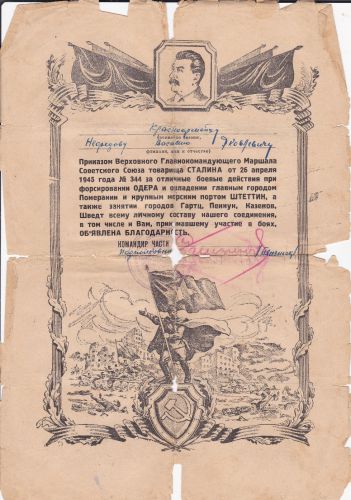 Красноармейцу
(воинское звание,
Василию Яковлевичу
фамилия, имя и отчество)
Приказом Верховного Главнокомандующего Маршала
Советского Союза товарища СТАЛИНА от 26 апреля
1945 года № 344 за отличные боевые действия при
форсировании ОДЕРА и овладении главным городом
Померании и крупным морским портом ШТЕТТИН, а
также занятии городов Гартц, Пенкун, Казеков,
Шведт всему личному составу нашего соединения,
в том числе и Вам, принимавшему участие в боях,
ОБ'ЯВЛЕНА БЛАГОДАРНОСТЬ.
КОМАНДИР ЧАСТИ